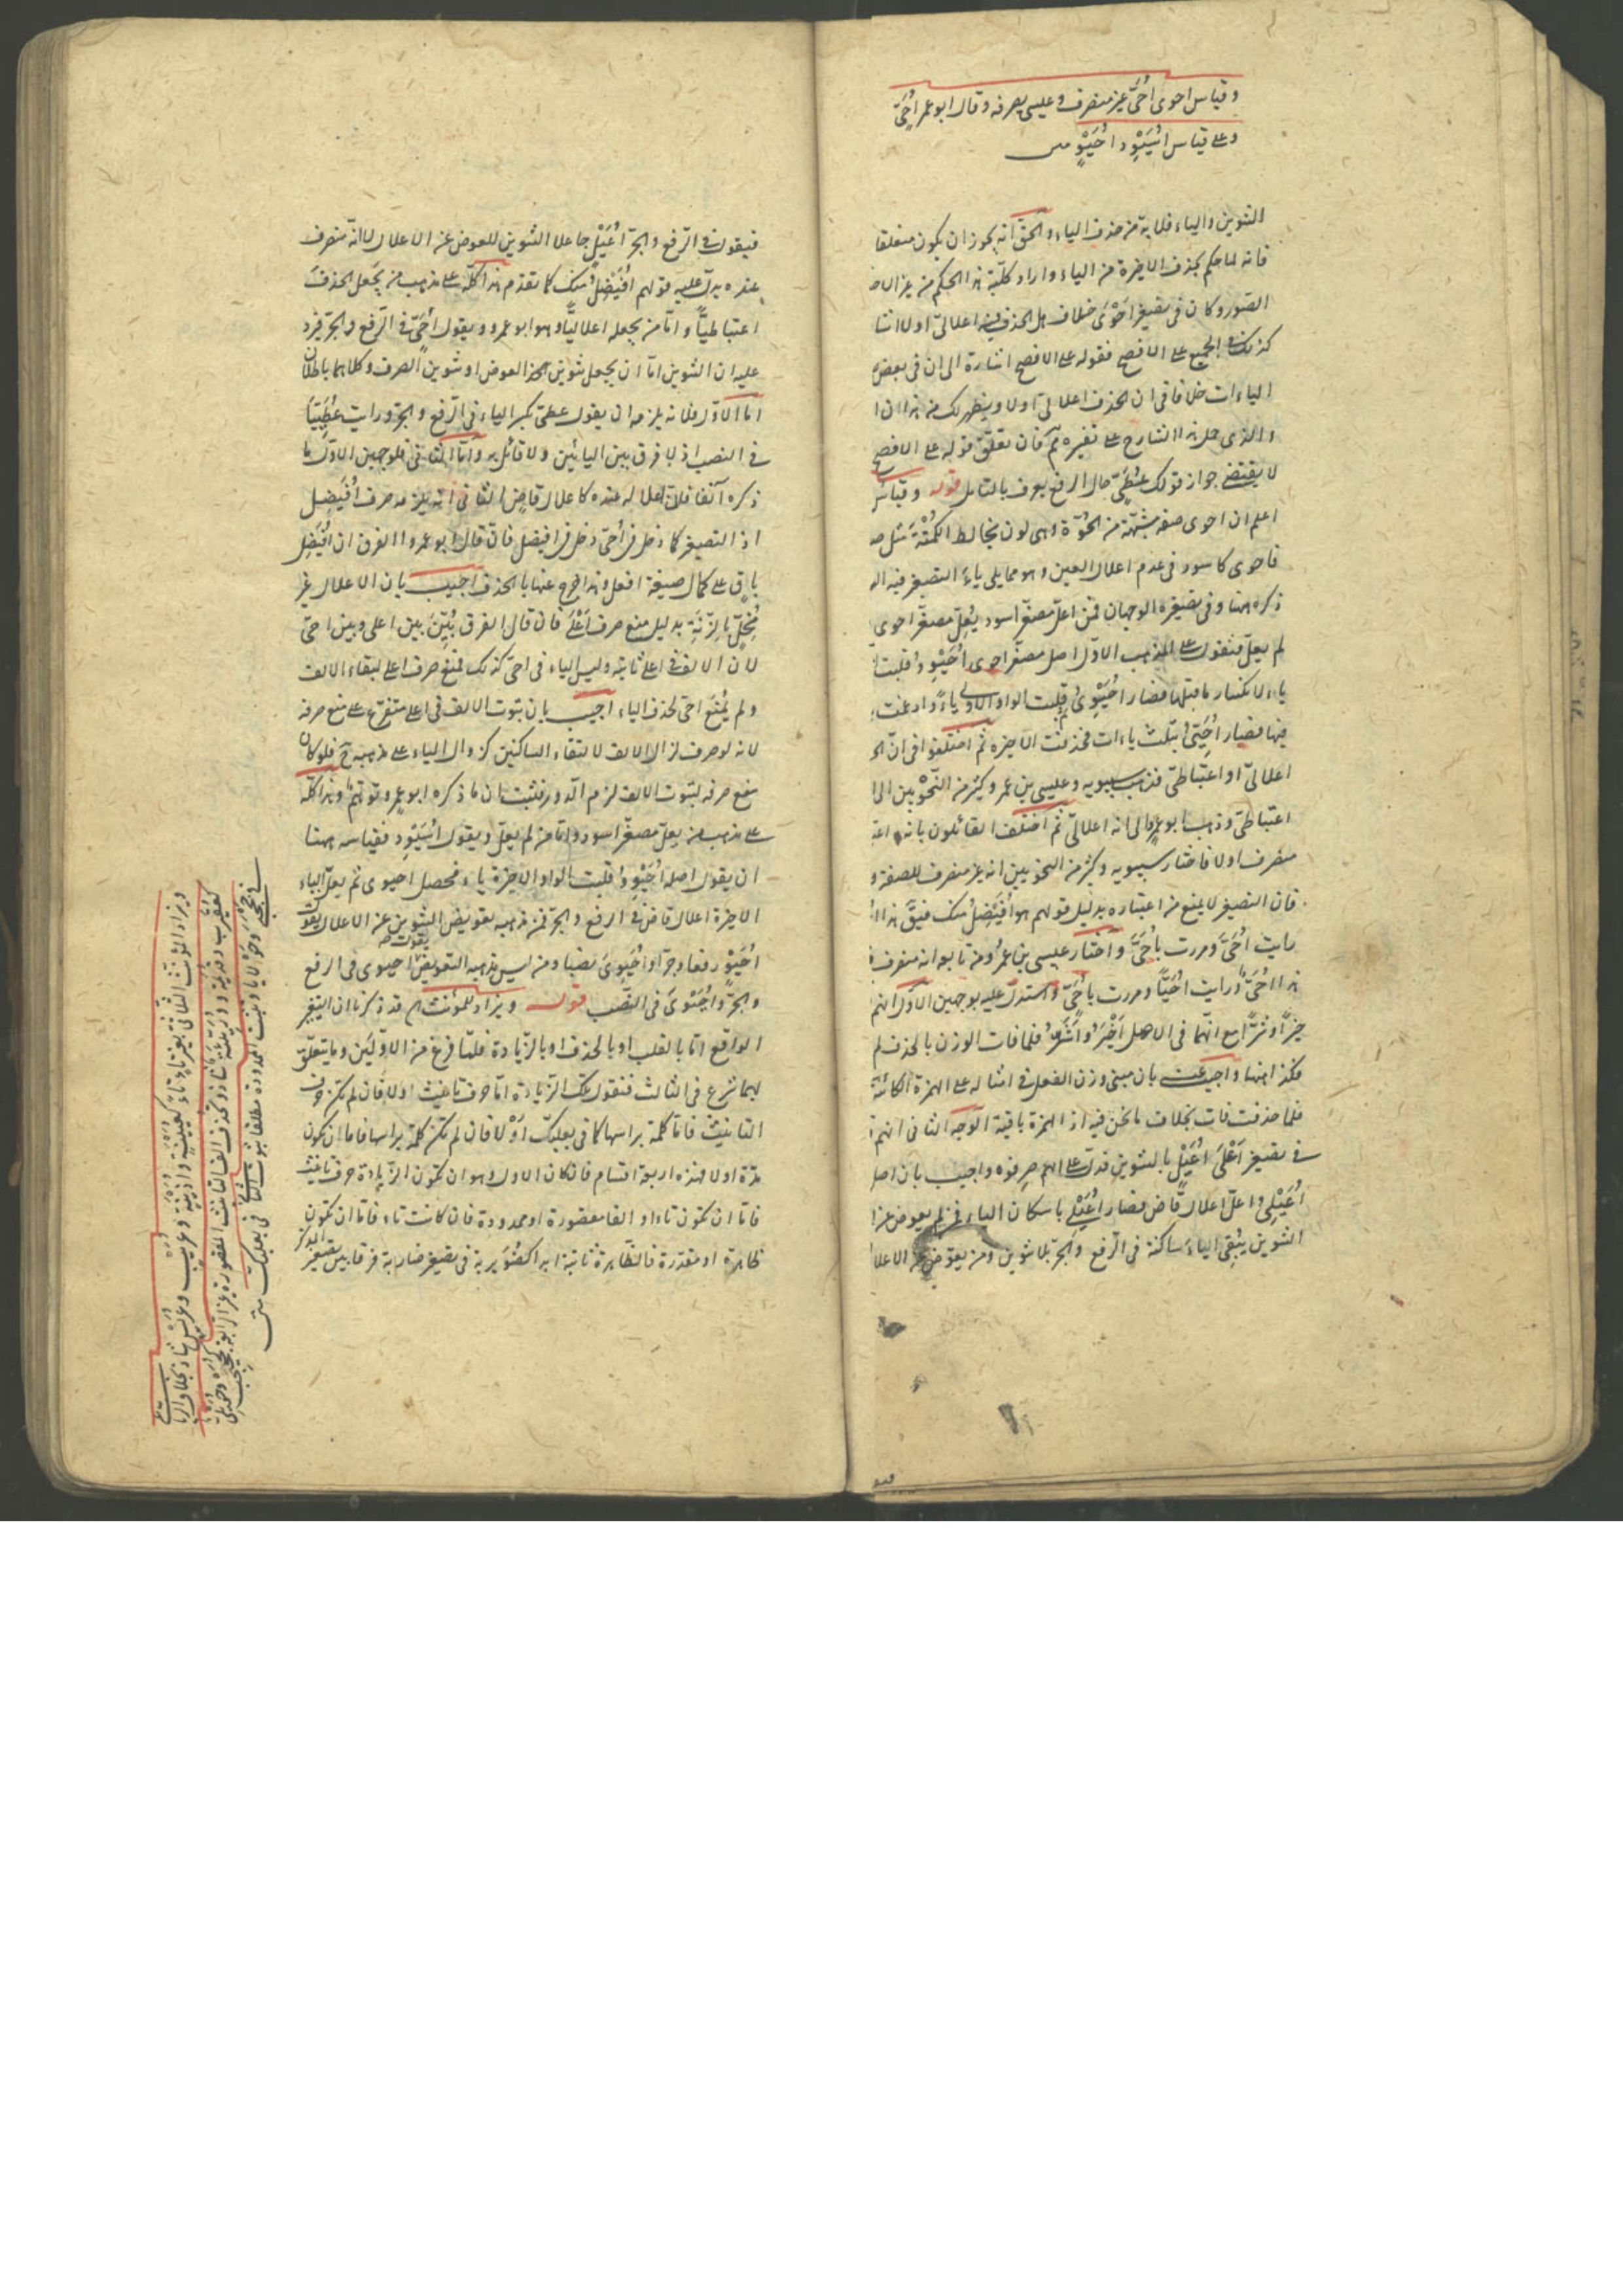 وقياس احوى أُحَىّ غير منصرف وعيسى يصرفه وقال ابو عمر أُحَىٍّ
وعلى قياس أُسَيْوِد أُحَيْوٍ متن
التنوين والياء فلا بد من حذف الياء والحق انه يجوز ان يكون متعلقا
فانه لما حكم بحذف الاخيرة من الياء واراد كلية هذا الحكم من غير
الصور وكان فى تصغير احوى خلاف هل الحذف فيه اعلالى اولا
كذلك فى الجميع على الافصح فقوله على الافصح اشارة الى ان فى بعض
الياءات خلافا فى ان الحذف اعلالى اولا ويظهر لك من هذا ان
والذى حمل هذا الشارح على تفسيره ثم فان تعلق قوله على الافصح
لا يقتضى جواز قولك عُطَيّى حال الرفع يعرف بالتامل قوله وقياس
اعلم ان احوى صفة مشبهة من الحُوّة وهى لون يخالط الكُمْتَة مثل
فاحوى كاسود فى عدم اعلال العين وهو مما يلى ياءَ التصغير فيه
ذكره ههنا وفى تصغيره الوجهان فمن اعلّ مصغّر اسود يُعِلّ مصغّر احوى
لم يعلّ فنقول على المذهب الاوّل اصل مصغّر احوى أُحَيْوِوُ قلبت
ياء لانكسار ما قبلها فصار أُحَيْوِىُ ثم قلبت الواو الاولى ياءً وادغمت
فيها فصار أُحَيِّىُ بثلث ياءات فحذفت الاخيرة ثم اختلفوا فى انّ
اعلالىّ او اعتباطىّ فذهب سيبويه وعيسى بن عمر وكثير من النّحْويين الى
اعتباطىّ وذهب ابو عمرو الى انه اعلالىّ ثم اختلف القائلون بانه
منصرف اولا فاختار سيبويه وكثير من النحويين انه غير منصرف للصفة و
فان التصغير لا يمنع من اعتباره بدليل قولهم هو أُفَيْضِلُ منك فيقول هذا
رايت أُحَىَّ ومررت بأُحَىَّ واختار عيسى بن عمر ومن تابعه انه منصرف
هذا أُحَىٌّ ورايت أُحَيًّا ومررت بأُحَىٍّ واستدل عليه بوجهين الاول انهم
خيرًا وشرًّا مع انهما فى الاصل أَخْيَرُ وأَشَرُّ فلما فات الوزن بالحذف لم
فكذا ههنا واجيب عنه بان مبنى وزن الفعل فى امثاله على الهمزة الكائنة
فلما حذفت فات بخلاف ما نحن فيه اذ الهمزة باقية الوجه الثانى انهم
فى تصغير أَعْلَى أُعَيْلٍ بالتنوين فدل على انهم صرفوه واجيب بان اصل
أُعَيْلِىُ اعلّ اعلال قاض فصار أُعَيْلِى باسكان الياء فمن لم يعوض عن
التنوين يُبْقِى الياءَ ساكنة فى الرفع والجرّ بلا تنوين ومن يعوّض عن الاعلال
فيقول فى الرّفع والجرّ أُعَيْلٍ جاعلا التنوين للعوض عن الاعلال لا انه منصرف
عنده يدلّ عليه قولهم أُفَيْضِلُ منك كما تقدم هذا كلّه على مذهب من يجعل الحذف
اعتباطيًّا وامّا من يجعله اعلاليًّا وهو ابو عمرو ويقول أُحَىٍّ فى الرّفع والجرّ فيرد
عليه ان التنوين امّا ان يجعل تنوين العوض او تنوين الصرف وكلاهما باطلان
امّا الاوّل فلانه يلزمه ان يقول عطىّ بكسر الياء فى الرّفع والجرّ ورايت عُطَيِّيًا
فى النصب اذ لا فرق بين اليائين ولا قائل به وامّا الثانى فلوجهين الاوّل ما
ذكره آنفا فلان اعلاله عنده كاعلال قاضٍ الثانى انه يلزمه صرف أُفَيْضِل
اذ التصغير كما دخل فى أُحَىّ دخل فى افيضل فان قال ابو عمرو الفرق ان أُفَيْضِل
باق على كمال صيغة افعل وهذا خرج عنها بالحذف اجيب بان الاعلال غير
مُخِلّ بالزِّنَةِ بدليل منع صرف أَعْلَى فان قال الفرق بُيِّنَ بين اعلى وبين احىّ
لان الالف فى اعلى ثابتة وليس الياء فى احىّ كذلك فمنع صرف اعلى لبقاء الالف
ولم يُمْنَع احىّ لحذف الياء اجيب بان ثبوت الالف فى اعلى متفرّع على منع صرفه
لانه لو صرف لزال الالف لالتقاء الساكنين كزوال الياء على مذهبه فلو كان
منع صرفه لثبوت الالف لزم الدور فثبت ان ما ذكره ابو عمرو توهّم وهذا كلّه
على مذهب من يعلّ مصغّر اسود وامّا من لم يعلّ ويقول أُسَيْوِد فقياسه ههنا
ان يقول اصله أُحَيْوِوُ قلبت الواو الاخيرة ياء فحصل احيوى ثم يعلّ الياء
الاخيرة اعلال قاض فى الرفع والجرّ فمن مذهبه تعويض التنوين عن الاعلال يقول
أُحَيْوٍ رفعا وجرّا وأُحَيْوِىَ نصبا ومن ليس مذهبه التعويض يقول احيوى فى الرفع
والجرّ وأُحَيْوِىَ فى النصب قوله ويزاد للمؤنث قد ذكرنا ان التغيّر
الواقع امّا بالقلب او بالحذف او بالزّيادة فلمّا فرغ من الاوّلين وما يتعلّق
بهما شرع فى الثالث فنقول تلك الزّيادة امّا حرف تانيث اولا فان لم تكن حرف
التانيث فامّا كلمة براسها كما فى بعلبك أَوْ لا فان لم تكن كلمة براسها فاما ان يكون
مدّة اولا فهذه اربعة اقسام فان كان الاول وهو ان تكون الزّيادة حرف تانيث
فامّا ان تكون تاء او الفا مقصورة او ممدودة فان كانت تاء فامّا ان تكون
ظاهرة او مقدّرة فالظاهرة ثابتة ابدا كضُوَيْرِبة فى تصغير ضاربة فرقا بين تصغير المذكر
ويزاد للمؤنث الثلاثى بغير تاء تاء كعيينة واذينة وعريب وعريس شاذ بخلاف الرباعى
كعقيرب وقديديمة ووريّئة شاذ وتحذف الف التانيث المقصورة غير الرابعة كجحيجب
وتثبت الممدودة مطلقا ثبوت الثانى فى بعلبك متن